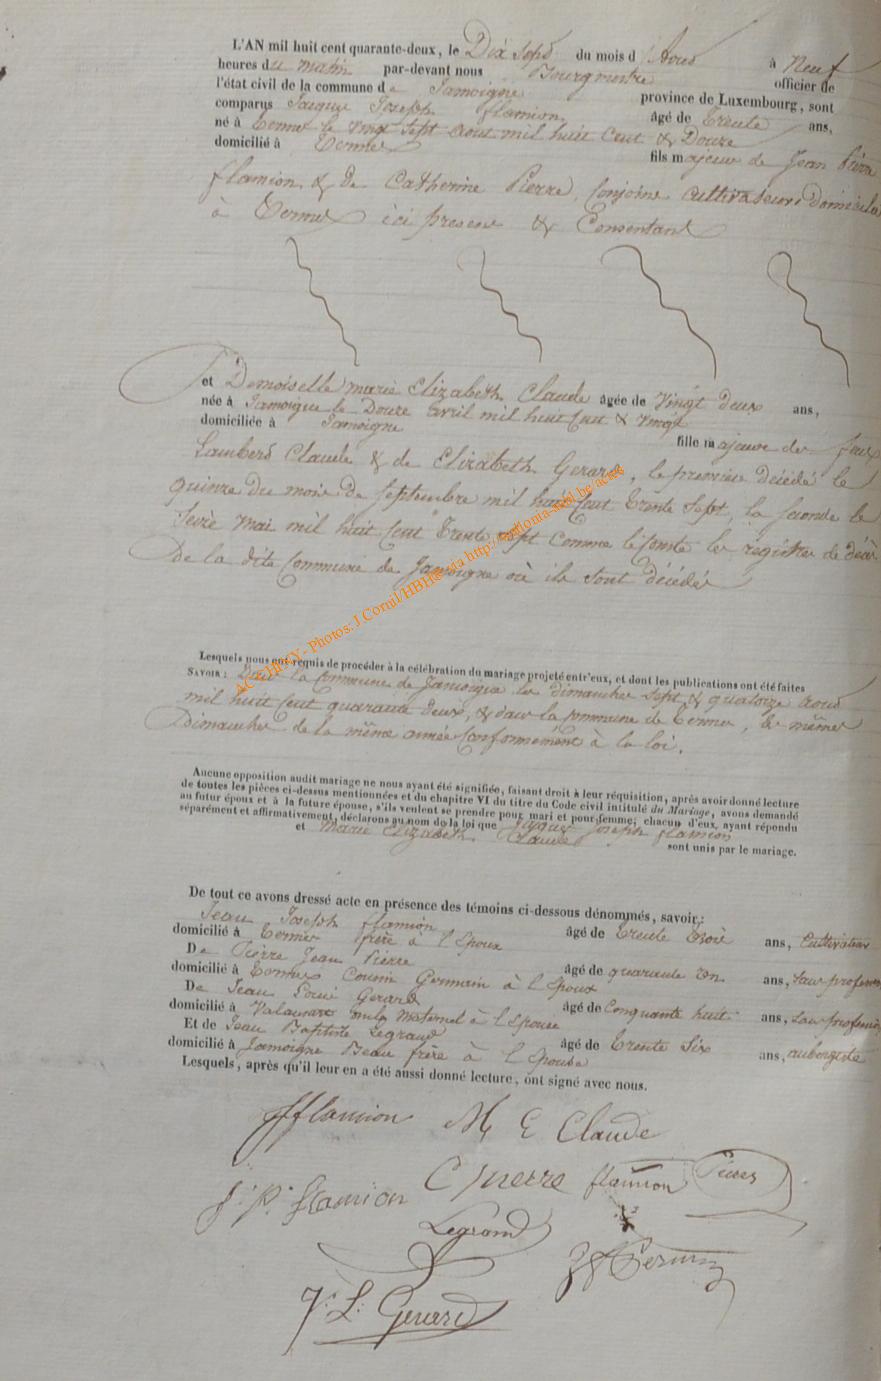 L'AN mil huit cent quarante-deux, le Dix Sept du mois d'Aout à Neuf
heures du matin par-devant nous Bourgmestre officier de
l'état civil de la commune de Jamoigne province de Luxembourg, sont
comparus Jacque Joseph flamion âgé de trente ans,
né à termes le vingt Sept aout mil huit Cent & Douze
domicilié à termes fils majeur de Jean Pierre
flamion & de Catherine Pierre, Conjoins cultivateurs Domiciliés
à termes ici present & Consentant
et Demoiselle marie Elizabeth Claude âgée de Vingt Deux ans,
née à Jamoigne le Douze avril mil huit Cent & vingt
domiciliée à Jamoigne fille majeure de feux
Lambert Claude & de Elizabeth Gerard, le premier Décédé le
quinze Du mois De Septembre mil huit Cent trente Sept, la seconde le
Seize mai mil huit Cent trente sept comme le conste les registres de décès
De la dite Commune de Jamoigne où ils sont décédés
ACGHFXY - Photos: J.Comil/HBH@ via http://
Lesquels nous ont requis de procéder à la célébration du mariage projeté entr'eux, et dont les publications ont été faites
SAVOIR : Dans la Commune de Jamoigne les dimanches sept & quatorze aout
mil huit Cent quarante Deux, & dans la commune de termes, les mêmes
Dimanches de la même année Conformément à la loi.
Aucune opposition audit mariage ne nous ayant été signifiée, faisant droit à leur réquisition, après avoir donné lecture
de toutes les pièces ci-dessus mentionnées et du chapitre VI du titre du Code civil intitulé du Mariage, avons demandé
au futur époux et à la future épouse, s'ils veulent se prendre pour mari et pour femme; chacun d'eux ayant répondu
séparément et affirmativement, déclarons au nom de la loi que Jacque Joseph flamion
et Marie Elizabeth Claude sont unis par le mariage.
De tout ce avons dressé acte en présence des témoins ci-dessous dénommés, savoir:
Jean Joseph flamion âgé de trente trois ans, Cultivateur
domicilié à termes frère à l'Epoux
De Pierre Jean Pierre âgé de quarante un ans, sans profession
domicilié à termes Cousin Germain à l'Epoux
De Jean Louis Gerard âgé de Cinquante huit ans, sans profession
domicilié à Valansart oncle Maternel à l'Epouse
Et de Jean Baptiste Legrand âgé de trente Six ans, aubergiste
domicilié à Jamoigne Beau frère à l'Epouse
Lesquels, après qu'il leur en a été aussi donné lecture, ont signé avec nous.
JJflamion M E Claude
J. P. flamion C Pierre flamion Pierre
Legrand
J. L. Gerard